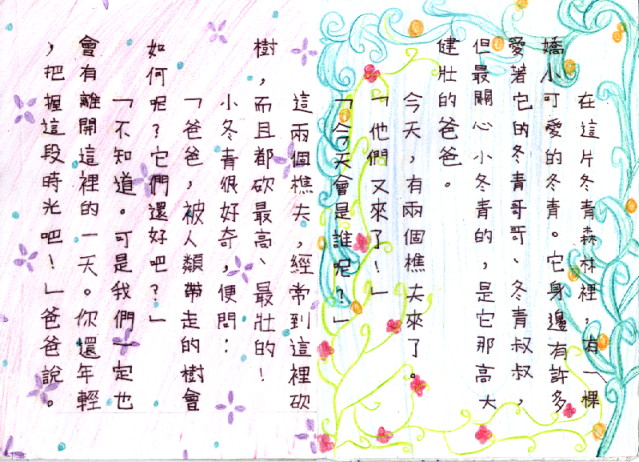 在這片冬青森林裡，有一棵
嬌小可愛的冬青。它身邊有許多
愛著它的冬青哥哥、冬青叔叔，
但最關心小冬青的，是它那高大
健壯的爸爸。
今天，有兩個樵夫來了。
「他們又來了！」
「今天會是誰呢？」
這兩個樵夫，經常到這裡砍
樹，而且都砍最高、最壯的！
小冬青很好奇，便問：
「爸爸，被人類帶走的樹會
如何呢？它們還好吧？」
「不知道。可是我們一定也
會有離開這裡的一天。你還年輕
，把握這段時光吧！」爸爸說。